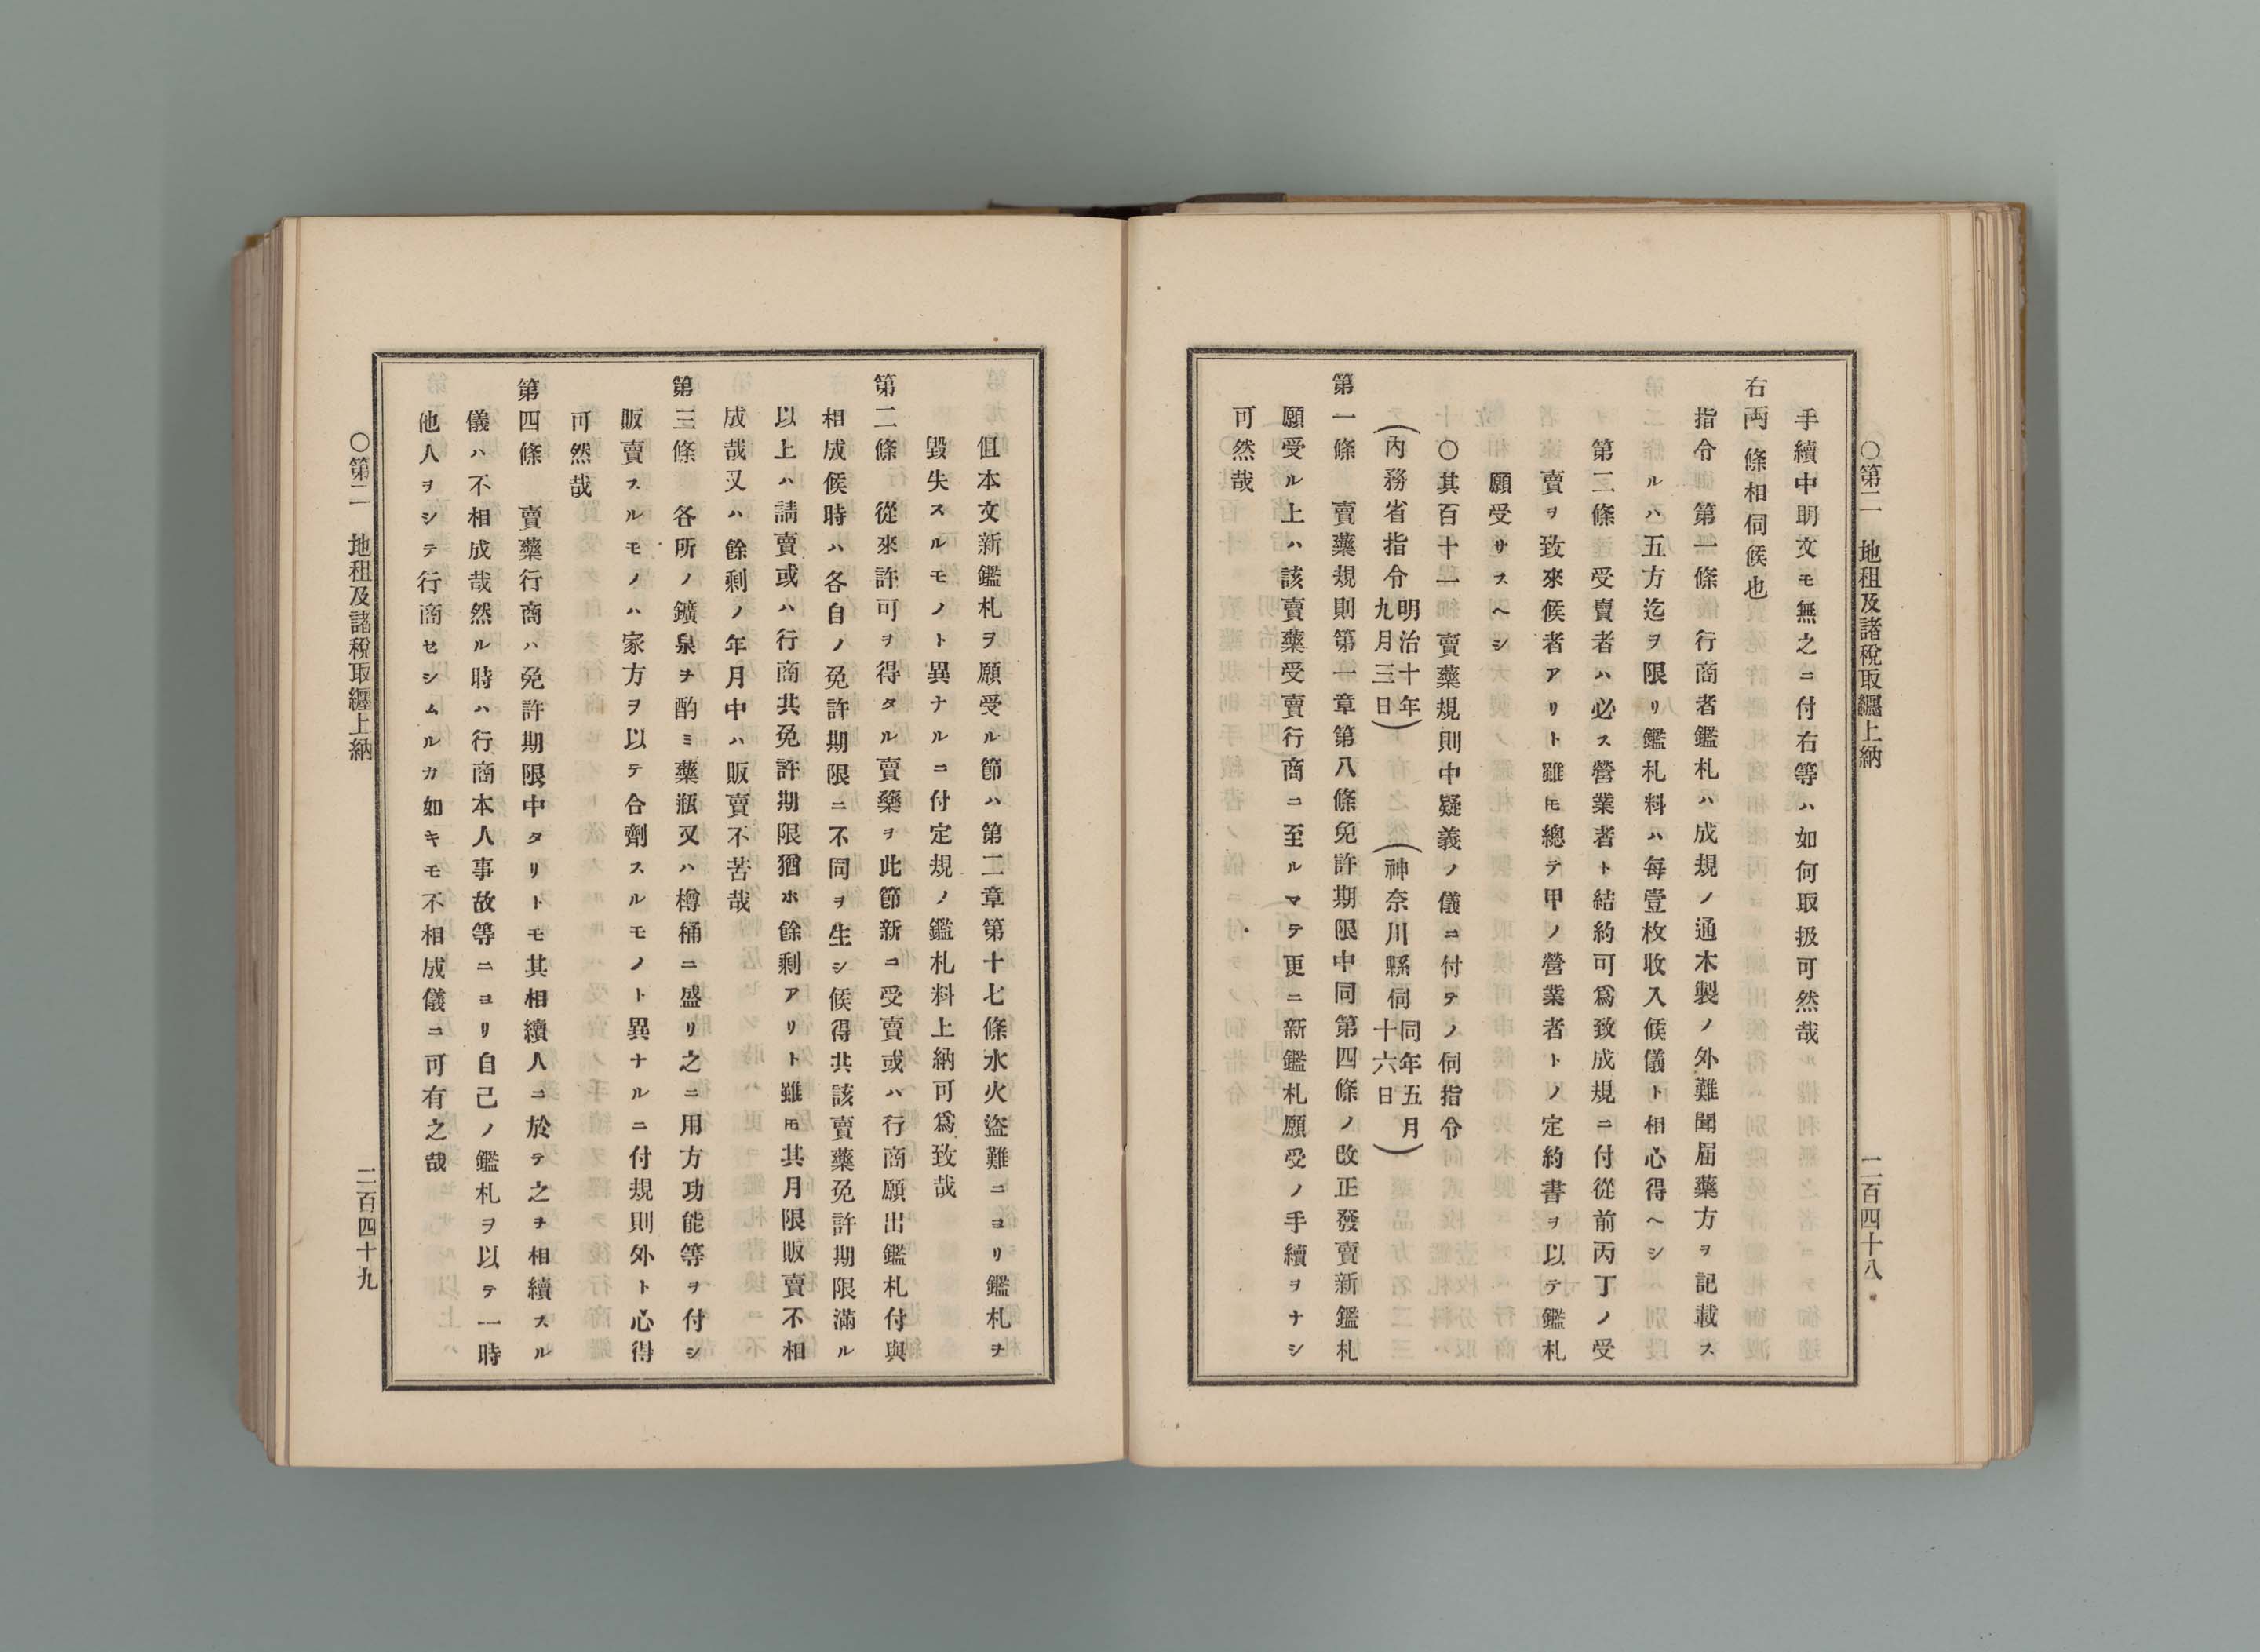 ○第二　地租及諸稅取纒上納　二百四十八
手續中明文モ無之ニ付右等ハ如何取扱可然哉
右兩條相伺候也
指令　第一條　行商者鑑札ハ成規ノ通木製ノ外難聞屆藥方ヲ記載ス
ルハ五方迄ヲ限リ鑑札料ハ每壹枚收入候儀ト相心得ヘシ
第二條　受賣者ハ必ス營業者ト結約可爲致成規ニ付從前丙丁ノ受
賣ヲ致來候者アリト雖𪜈總テ甲ノ營業者トノ定約書ヲ以テ鑑札
願受サスヘシ
○其百十一　賣藥規則中疑義ノ儀ニ付テノ伺指令
（內務省指令明治十年九月三日）　（神奈川縣伺同年五月十六日）
第一條　賣藥規則第一章第八條免許期限中同第四條ノ改正發賣新鑑札
願受ル上ハ該賣藥受賣行商ニ至ルマテ更ニ新鑑札願受ノ手續ヲナシ
可然哉
但本文新鑑札ヲ願受ル節ハ第二章第十七條水火盜難ニヨリ鑑札ヲ
毀失スルモノト異ナルニ付定規ノ鑑札料上納可爲致哉
第二條　從來許可ヲ得タル賣藥ヲ此節新ニ受賣或ハ行商願出鑑札付與
相成候時ハ各自ノ免許期限ニ不同ヲ生シ候得共該賣藥免許期限滿ル
以上ハ請賣或ハ行商共免許期限猶ホ餘剩アリト雖𪜈其月限販賣不相
成哉又ハ餘剩ノ年月中ハ販賣不苦哉
第三條　各所ノ鑛泉ヲ酌ミ藥瓶又ハ樽桶ニ盛リ之ニ用方功能等ヲ付シ
販賣スルモノハ家方ヲ以テ合劑スルモノト異ナルニ付規則外ト心得
可然哉
第四條　賣藥行商ハ免許期限中タリトモ其相續人ニ於テ之ヲ相續スル
儀ハ不相成哉然ル時ハ行商本人事故等ニヨリ自己ノ鑑札ヲ以テ一時
他人ヲシテ行商セシムルカ如キモ不相成儀ニ可有之哉
○第二　地租及諸稅取纒上納　二百四十九